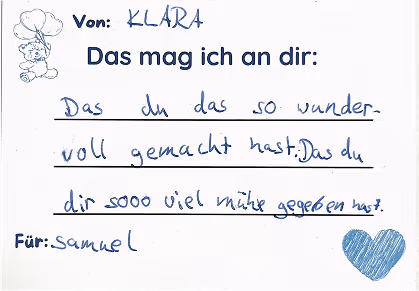 Von: KLARA
Das mag ich an dir:
Das du das so wunder-
voll gemacht hast. Das du
dir sooo viel mühe gegeben hast.
Für: Samuel